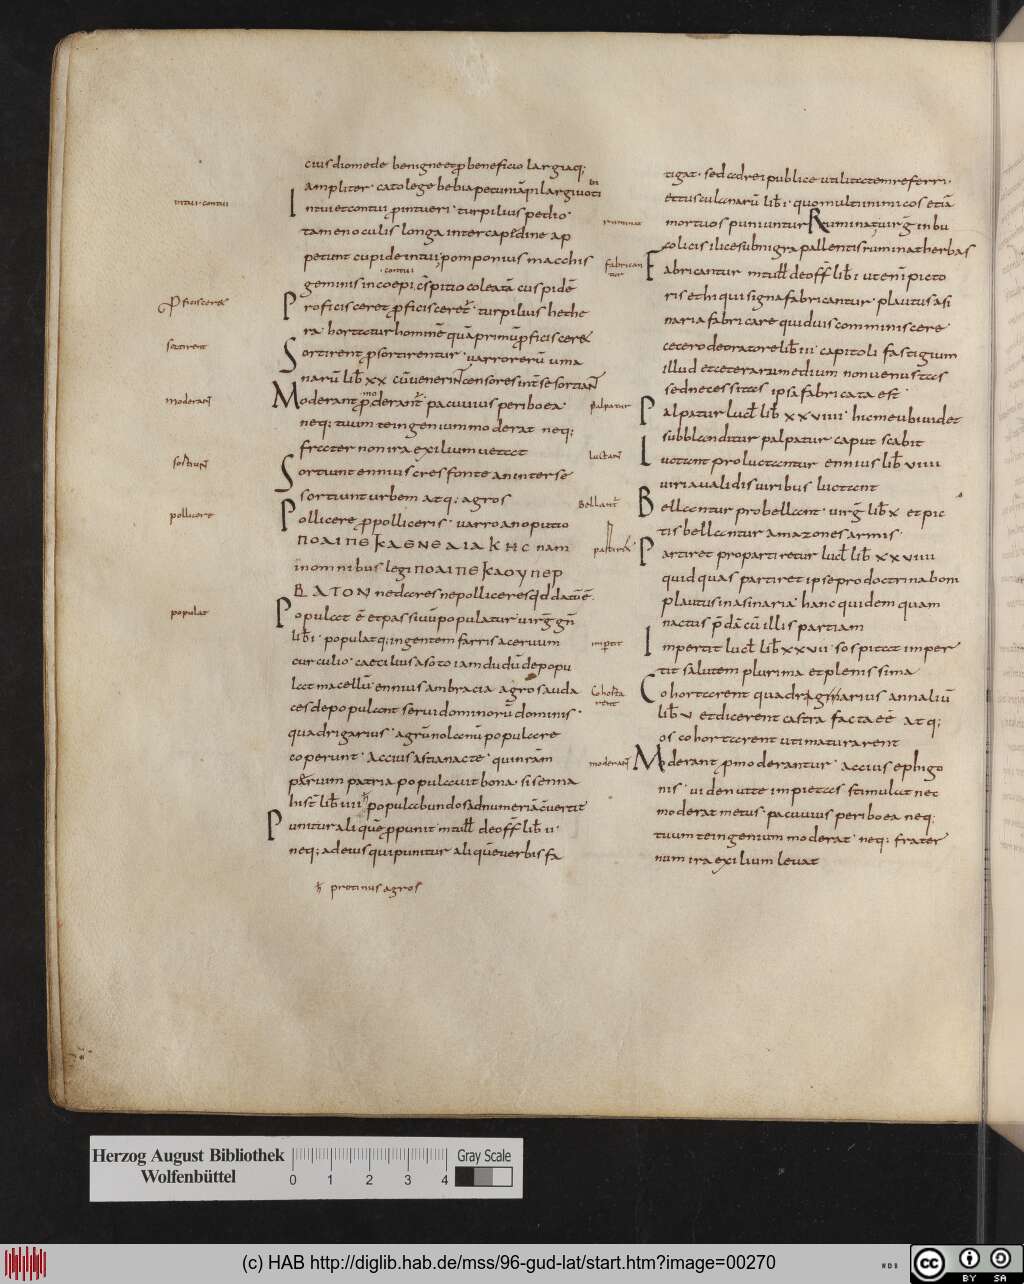 cius diomede benigne et ꝓ beneficio largiaq;
ampliter. cato lege bebia pecuniā ī largiuoti
intui. contui
Intui et contui ꝓ intueri. turpilius pedio.
tamen oculis longa intercapidine ap
petunt cupide intui; pomponius macchis
contui
geminis incoepi;
Proficisceret
Proficisceret ꝓficisceret̄. turpilius hethe
ra. hortatur hominē quā primū ꝓficisceret
sortirent
Sortirent ꝓ sortirentur. uarro rerū uma
narū lib̄ xx cū uenerint censores int̄ se sortiant
moderant
Moderant ꝓ moderant̄. pacuuius periboea.
neq; tuum te ingenium moderat neq;
frater non ira exilium uetat
sortiunt
Sortiunt ennius cresfonte an inter sē
sortiunt urbem atq; agros
pollicere
Pollicere ꝓ polliceris. uarro anoputio
nam
in omnibus legi
ne dares ne polliceres qd datū ē.
populat
Populat ē et passiuū populatur uirḡ gn̄
lib̄ i. populatq; ingentem farris aceruum
curculio. caecilius asoto iamdudū depopu
lat macellū. ennius ambracia agros auda
ces depopulant serui dominorū dominis.
quadrigarius. agrū nolanū populare
coperunt. Accius astianacte. qui nr̄ām
per̄ium patria populauit bona. sisenna
hist̄ lib̄ iiii populabundos ad numeriā uertit
Punitur aliquē ꝓ punit. m tull̄ de off̄ lib̄ ii.
neq; ad eius qui punitur aliquē uerbis fa
protinus agros
tigat. sed ad rei publice utilitatem referri.
et tusculanarū lib̄ i. quo multi inimicos etiā
ruminat
mortuos puniuntur Ruminatur uirḡ in bu
colicis ilice sub nigra pallentis ruminat herbas
fabrican
tur
Fabricantur m tull̄ de off̄ lib̄ i ut enī picto
ris et hi qui signa fabricantur. plautus asi
naria fabricare quiduis comminiscere
cecero de oratore lib̄ iii. capitoli fastigium
illud et ceterarum edium non uenustas
sed necessitas ipsa fabricata est.
palpatur
Palpatur lucil̄ lib̄ xxviiii. hic me ubi uidet
subblanditur palpatur caput scabit
luctant
Luctant pro luctantur ennius lib̄ viiii
uiri aualidis uiribus luctant
Bellant̄
Bellantur pro bellant. uirḡ lib̄ x et pic
tis bellantur amazones armis.
partiret
Partiret pro partiretur lucil̄ lib̄ xxviiii
quid quas partiret ipse pro doctrina bom
plautus in asinaria. hanc quidem quam
nactus p̄dā cū illis partiam
impertit
Impertit lucil̄ lib̄ xxvii. sospitat imper
tit salutem plurima et plenissima
Cohorta
rent
Cohortarent quadragınarius annaliū
lib̄ v et dicerent castra facta eē atq;
os cohortarent uti maturarent
moderant
Moderant ꝓ moderantur. accius ephigo
nis. uiden ut te impietas stimulat nec
moderat metus. pacuuius periboea neq;
tuum te ingenium moderat. neq; frater
num ira exilium leuat
Herzog August Bibliothek
Wolfenbüttel
0 1 2 3 4
Gray Scale
(c) HAB http://diglib.hab.de/mss/96-gud-lat/start.htm?image=00270
WDB
cc BY SA